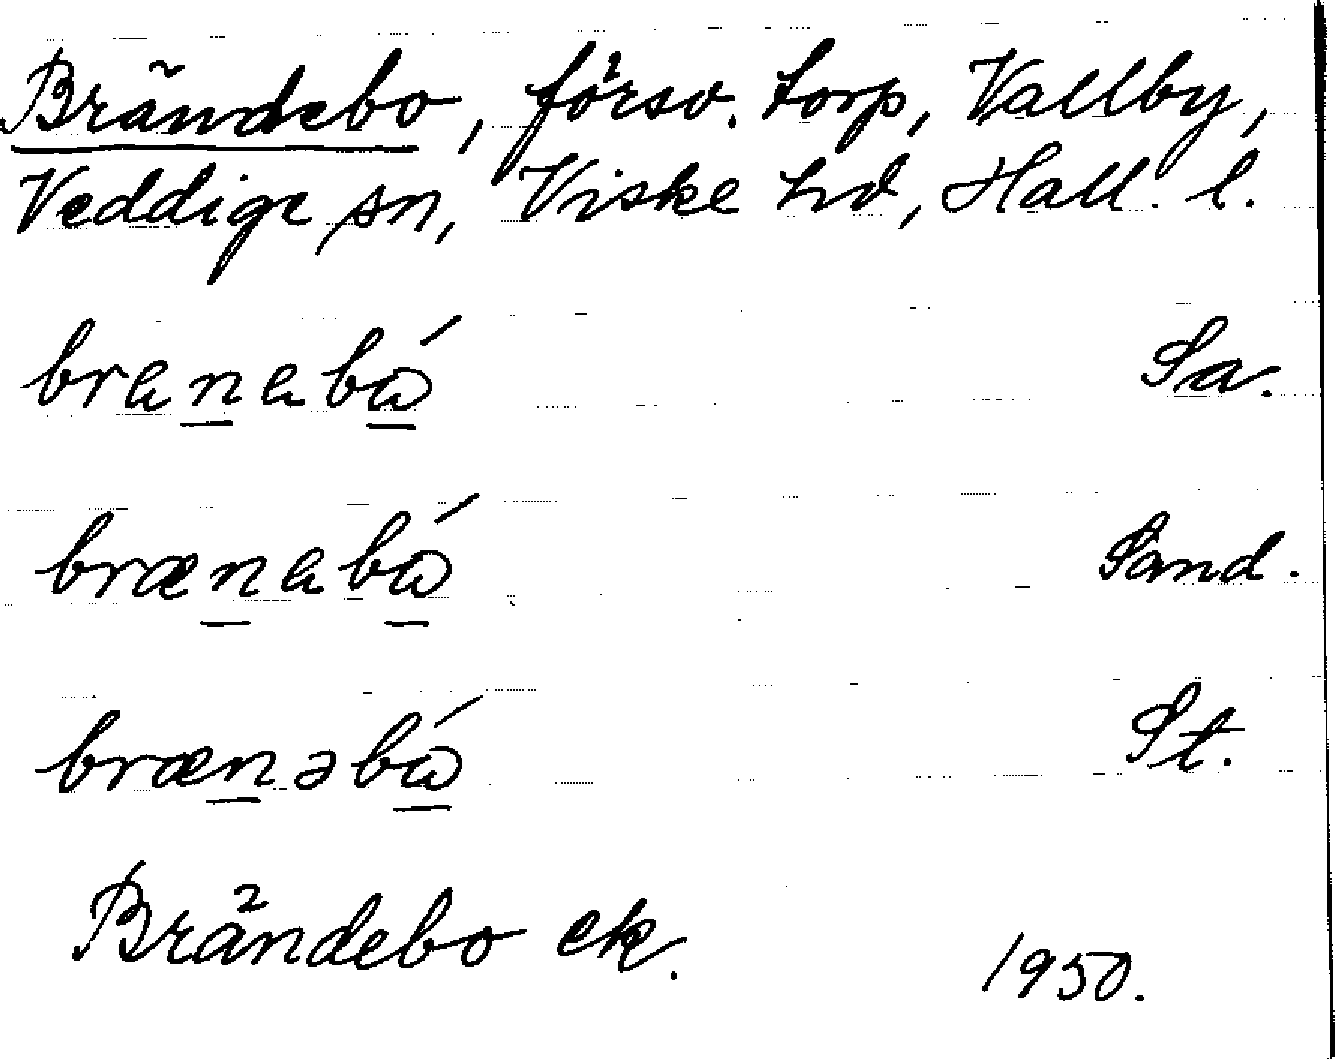 Brändebo, försv. torp, Vallby,
Veddige sn, Viske hd, Hall. l.
branabǻ Sa.
brænabǻ Sand.
brænəbǻ St.
Brändebo ek. 1950.